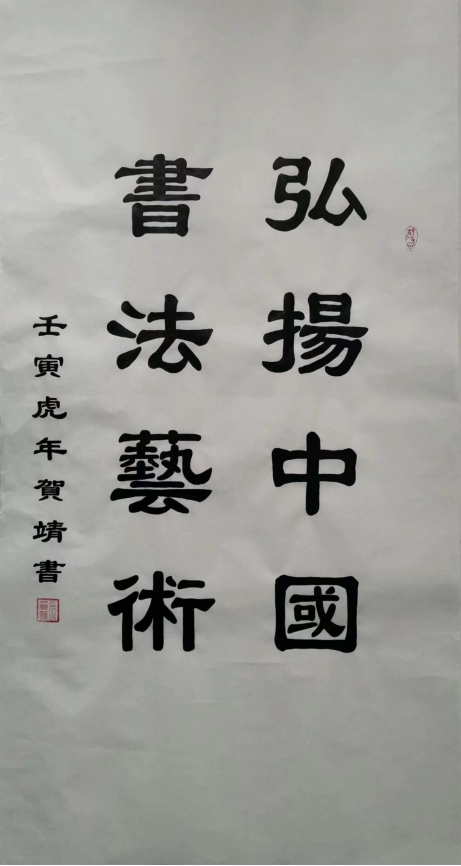 弘揚中國
書法藝術
壬寅虎年賀靖書